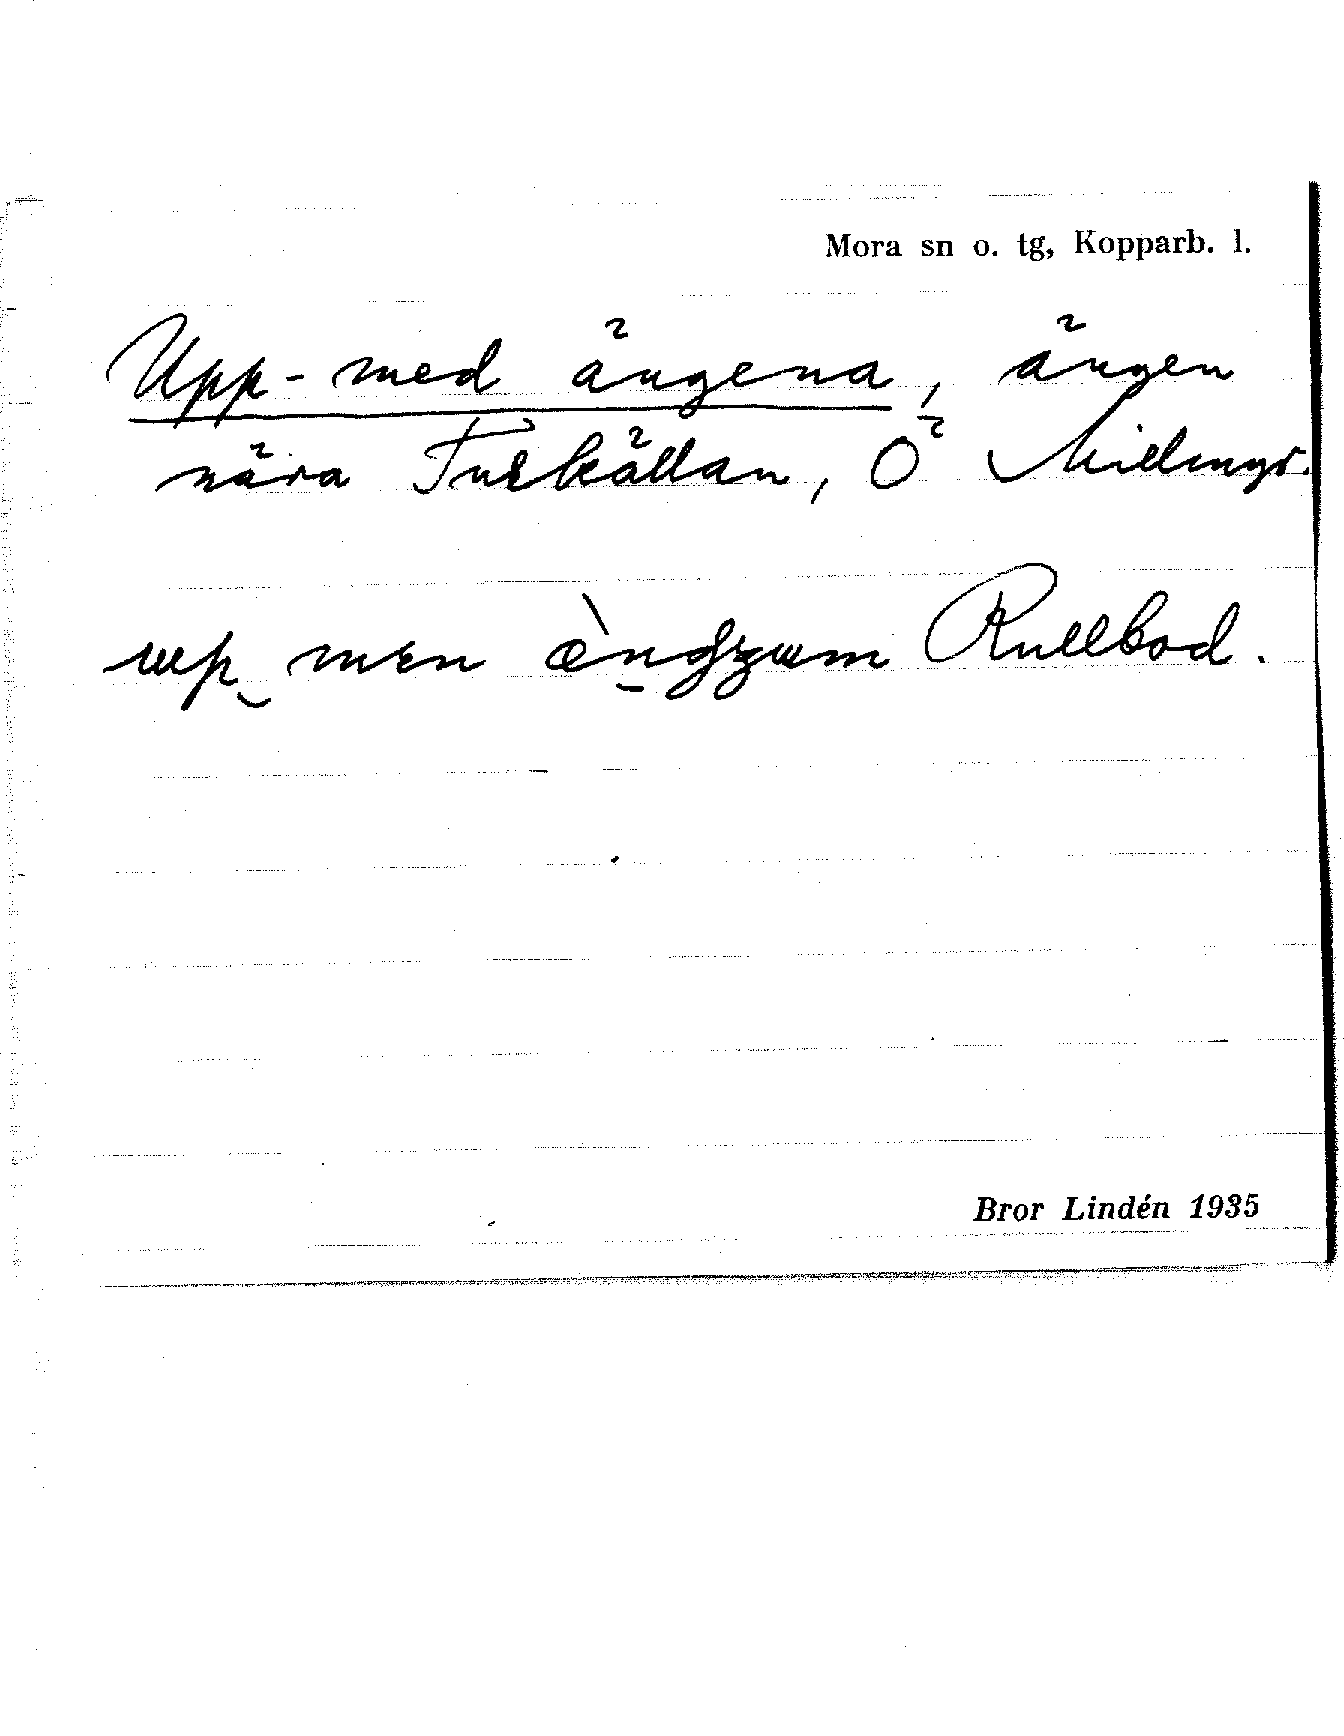 Mora sn o. tg, Kopparb. l.
Upp-med ängena, ängen
nära Turkällan, Ö Millings.
up men Rullbod.
Bror Lindén 1935